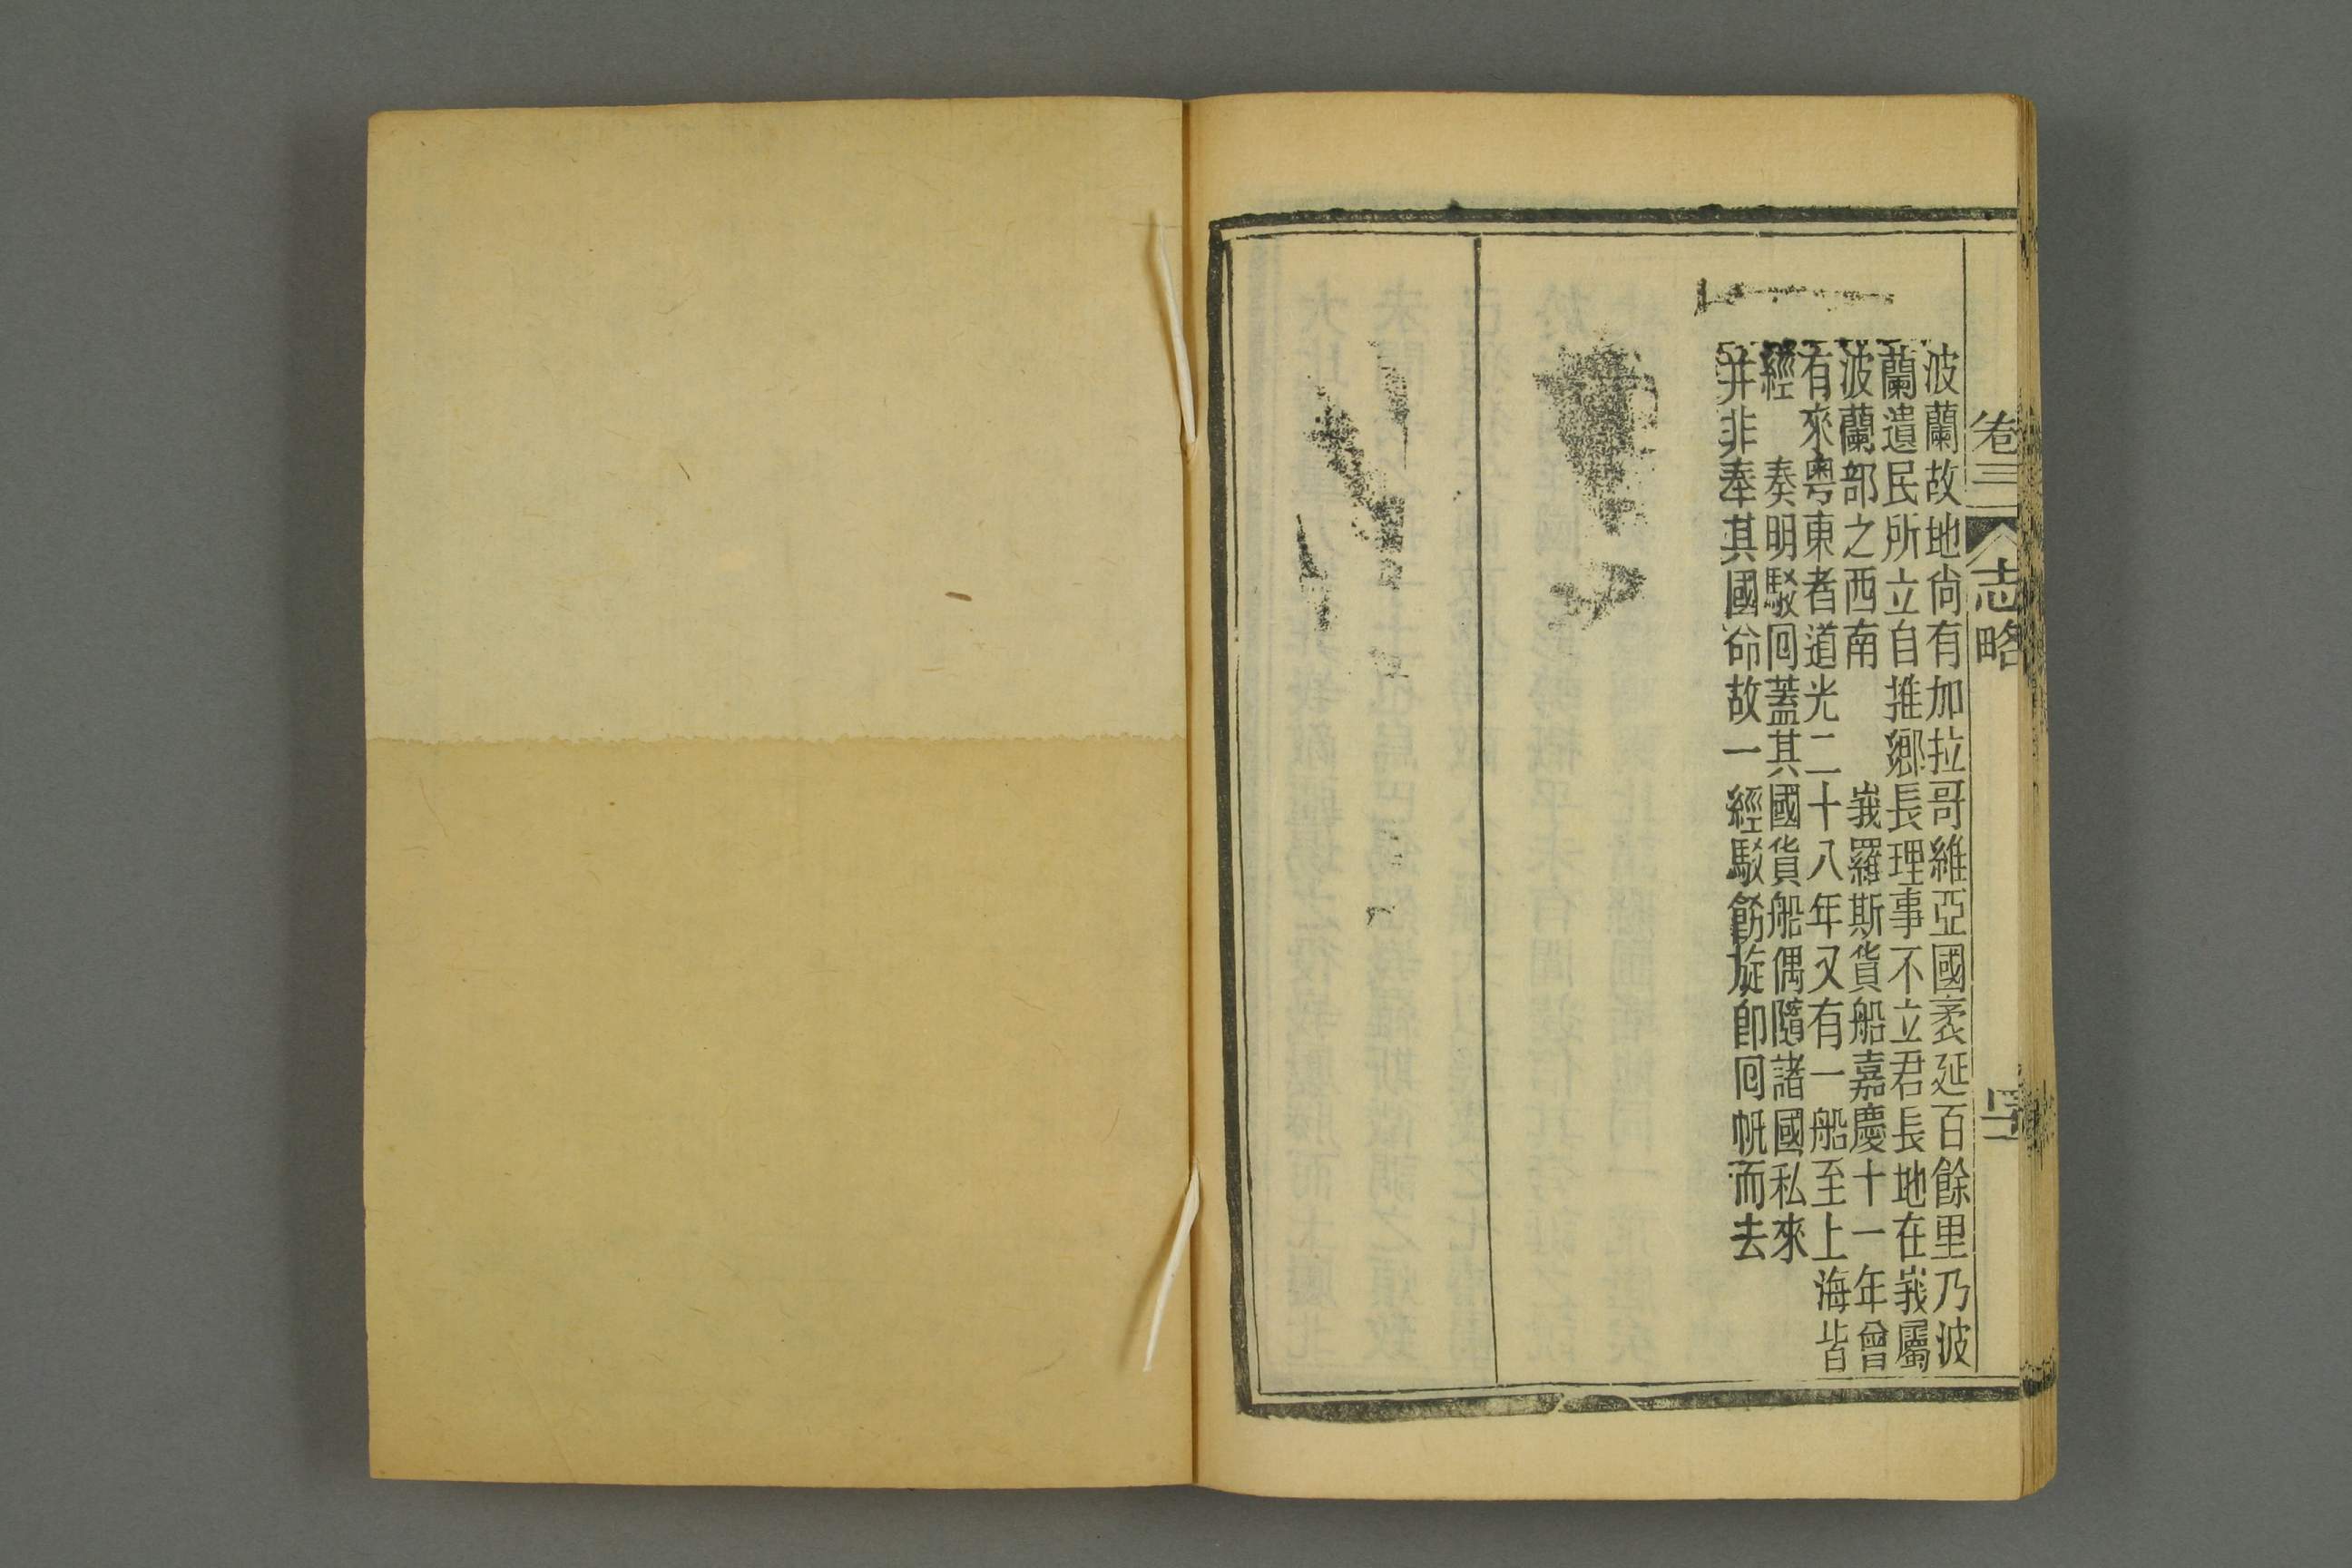 卷三 志略
波蘭故地尙有加拉哥維亞國袤延百餘里乃波
蘭遺民所立自推鄉長理事不立君長地在峩屬
波蘭部之西南 峩羅斯貨船嘉慶十一年曾
有來粵東者道光二十八年又有一船至上海皆
經 奏明駁回蓋其國貨船偶隨諸國私來
并非奉其國命故一經駁飭旋卽回帆而去